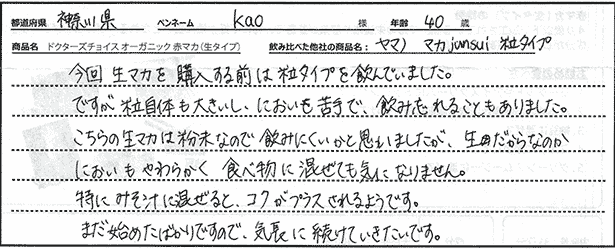 都道府県 神奈川県 ペンネーム kao 様 年齢 40 歳
商品名 ドクターズチョイス オーガニック 赤マカ(生タイプ) 飲み比べた他社の商品名: ヤマノ マカjunsui 粒タイプ
今回 生マカを購入する前は粒タイプを飲んでいました。
ですが 粒自体も大きいし、においも苦手で、飲み忘れることもありました。
こちらの生マカは粉末なので 飲みにくいかと思いましたが、生田だからなのか
においも やわらかく 食べ物に混ぜても気になりません。
特に みそ汁に混ぜると、コクがプラスされるようです。
まだ始めたばかりですので、気長に続けていきたいです。